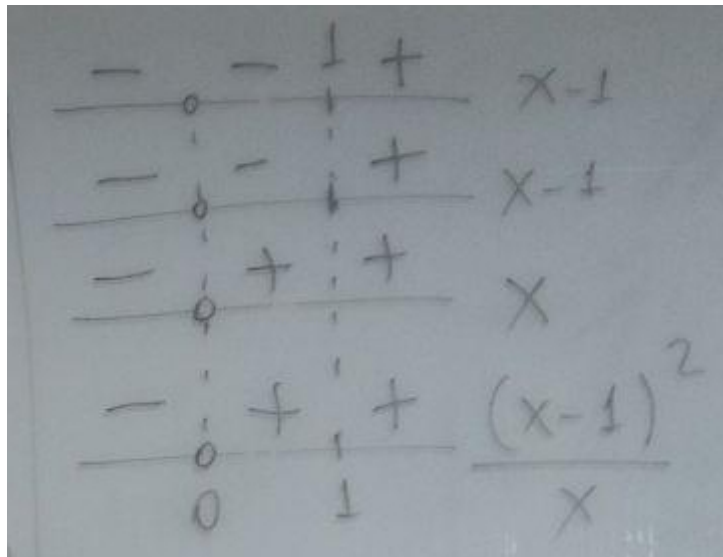 − − 1 + x-1
− - + x-1
− + + x
− + + (x-1)²/x
0 1